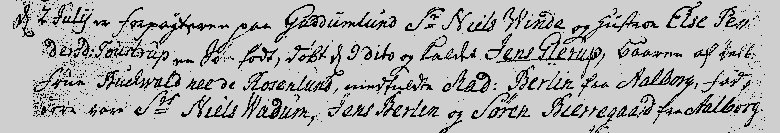 d 2 July er forpagteren paa Gudumlund Sr Niels Winde og hustrue Else Pe-
dersd: Tourup en Søn født, døbt d 9 dito og kaldet Jens Glerup, baaren af
frue Buchwald nee de Rosenlund, medfulte Mad: Berlin fra Aalborg, fad-
dere vare Srs Niels Wadum, Jens Berlin og Søren Bierregaard fra Aalborg